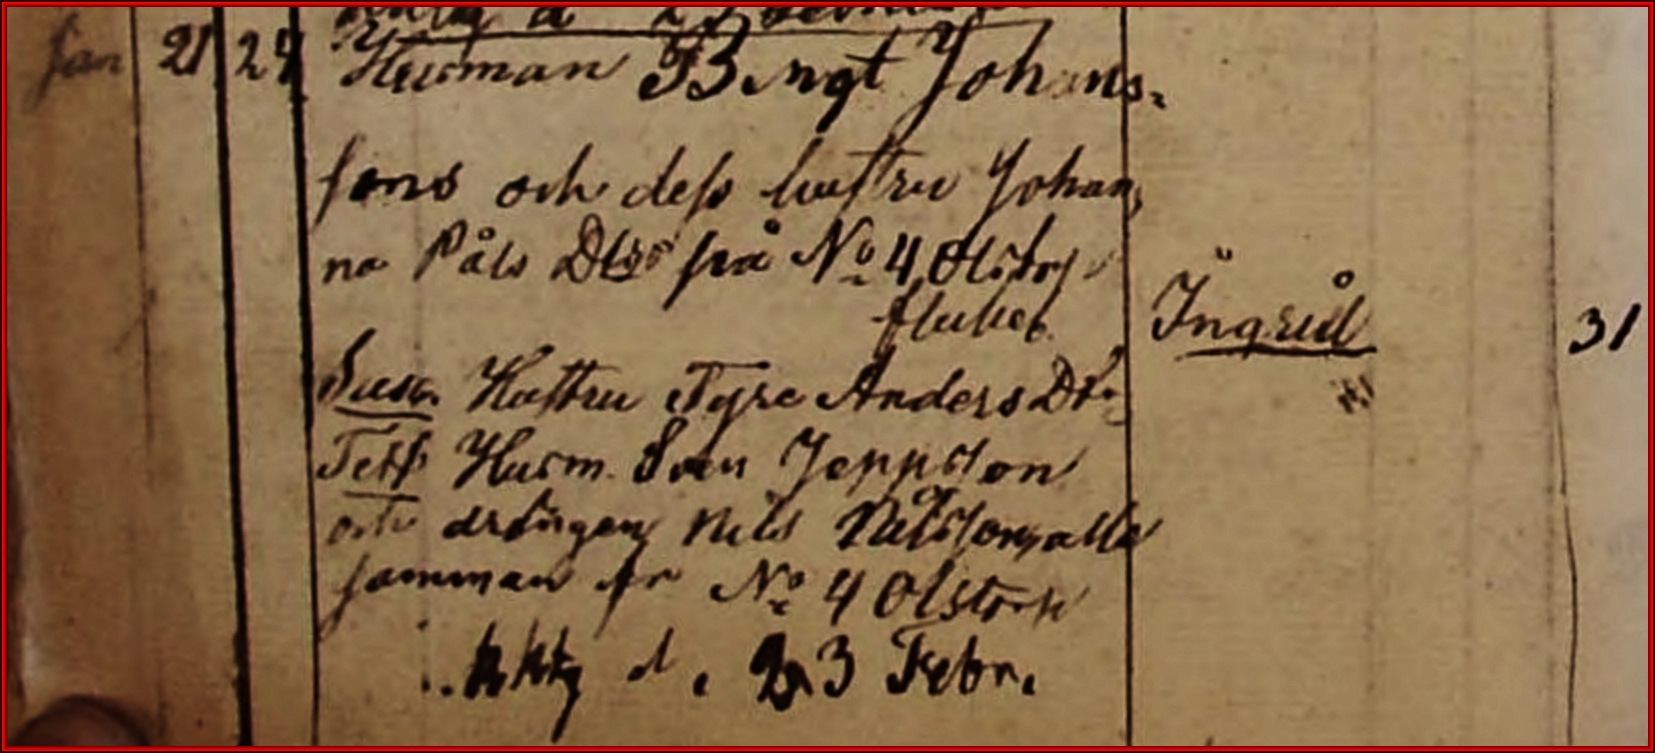 Jan 21 24 Husman Bengt Johans-
sons och dess hustru Johan-
na Påls Dtrs från No 4 Olstorp
flickeb. Ingrid 31
Susc. Hustru Tyre Anders Dtr
Test Husm. Sven Jeppsson
och drängen Nils Nilsson, alla
samman fr No 4 Olstorp
Kktg d. 23 Febr.